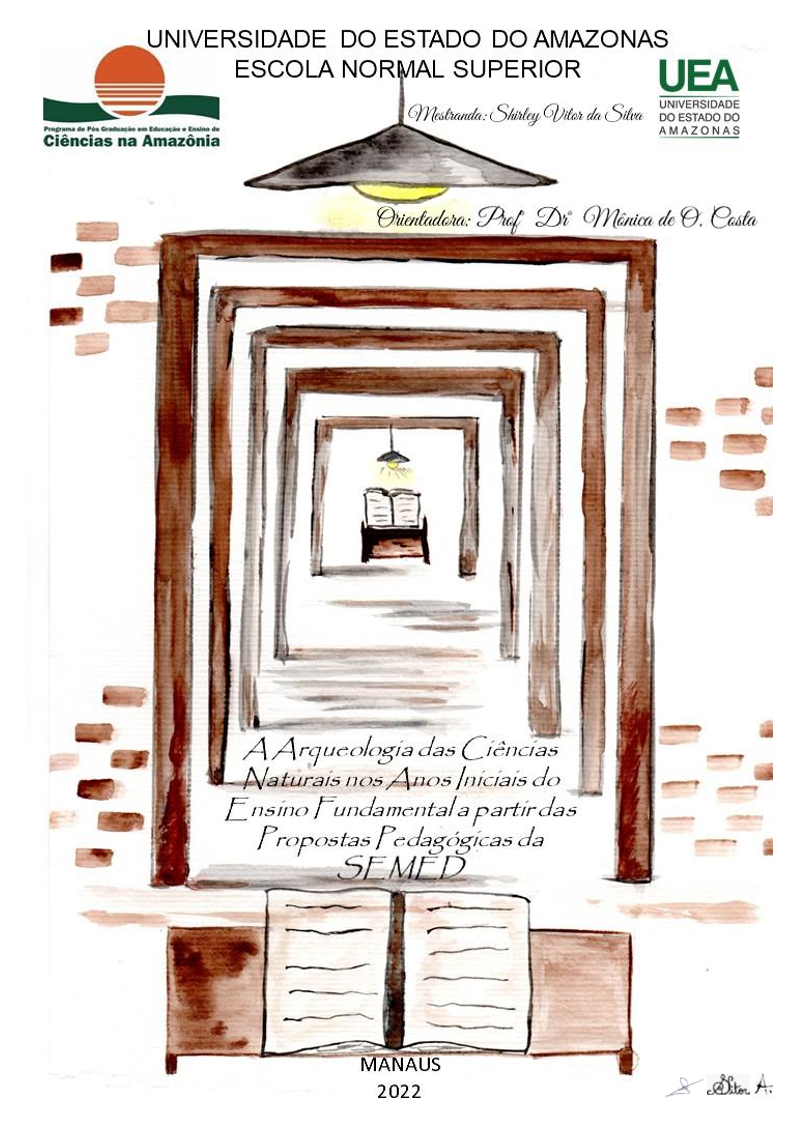 UNIVERSIDADE DO ESTADO DO AMAZONAS
ESCOLA NORMAL SUPERIOR
Programa de Pós Graduação em Educação e Ensino de
Ciências na Amazônia
UEA
UNIVERSIDADE
DO ESTADO DO
AMAZONAS
Mestranda: Shirley Vitor da Silva
Orientadora: Profª Drª Mônica de O. Costa
A Arqueologia das Ciências
Naturais nos Anos Iniciais do
Ensino Fundamental a partir das
Propostas Pedagógicas da
SEMED
MANAUS
2022
Vitor A.